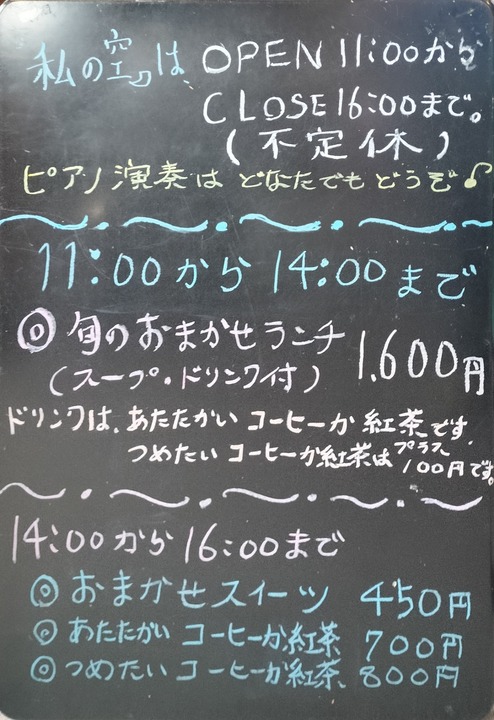 私の空は OPEN 11:00から
CLOSE 16:00まで。
(不定休)
ピアノ演奏は どなたでもどうぞ♪
11:00から 14:00まで
◎ 旬のおまかせランチ 1,600円
(スープ・ドリンク付)
ドリンクは、あたたかい コーヒーか 紅茶です。
つめたい コーヒーか紅茶はプラス100円です。
14:00から 16:00まで
◎ おまかせスイーツ 450円
◎ あたたかい コーヒーか紅茶 700円
◎ つめたい コーヒーか紅茶、800円